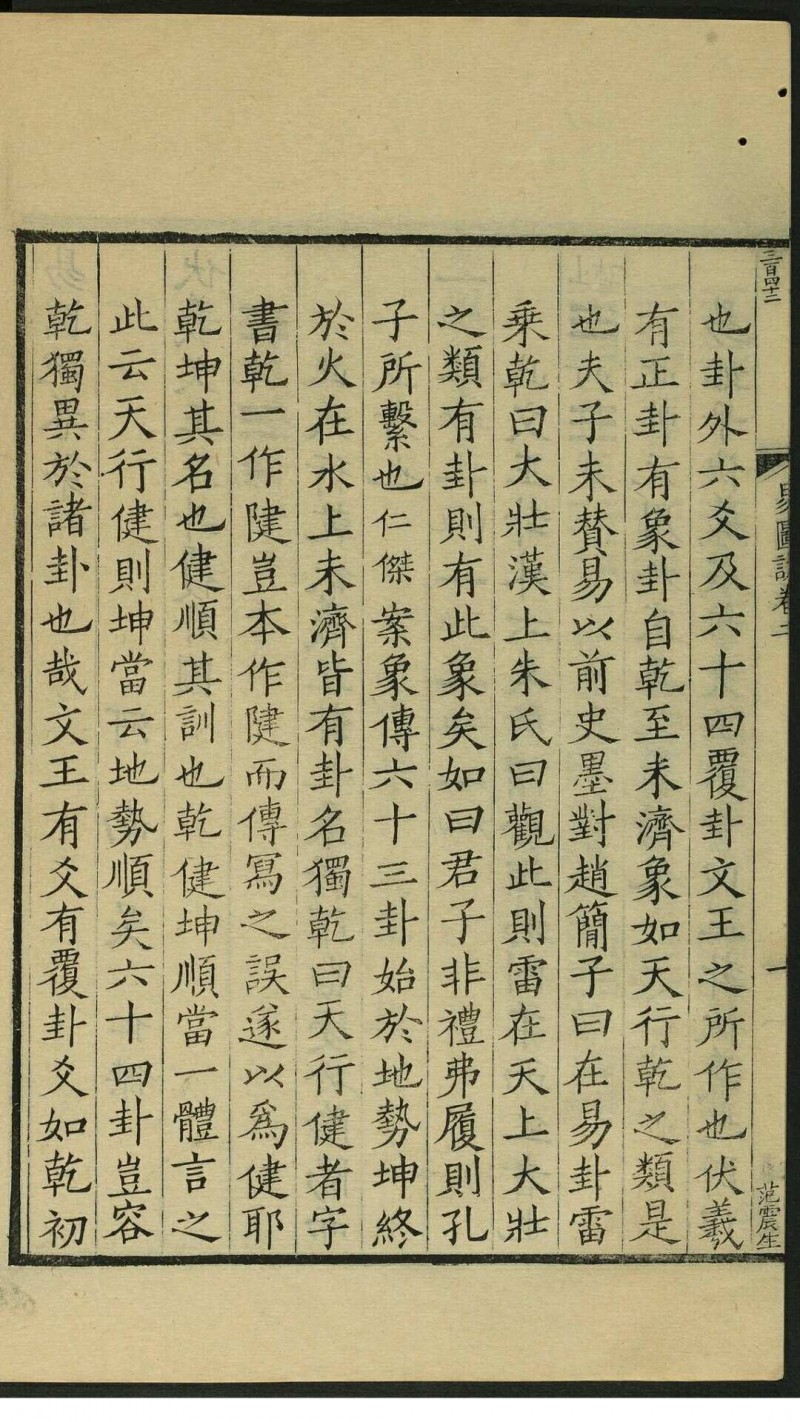 三百四十二
易圖說卷二
一
范震生
也卦外六爻及六十四覆卦文王之所作也伏羲
有正卦有象卦自乾至未濟象如天行乾之類是
也夫子未賛易以前史墨對趙簡子曰在易卦雷
乗乾曰大壯漢上朱氏曰觀此則雷在天上大壯
之類有卦則有此象矣如曰君子非禮弗履則孔
子所繫也仁傑案象傳六十三卦始於地勢坤終
於火在水上未濟皆有卦名獨乾曰天行健者字
書乾一作㨗豈本作㨗而傳冩之誤遂以爲健耶
乾坤其名也健順其訓也乾健坤順當一體言之
此云天行健則坤當云地勢順矣六十四卦豈容
乾獨異於諸卦也哉文王有爻有覆卦爻如乾初